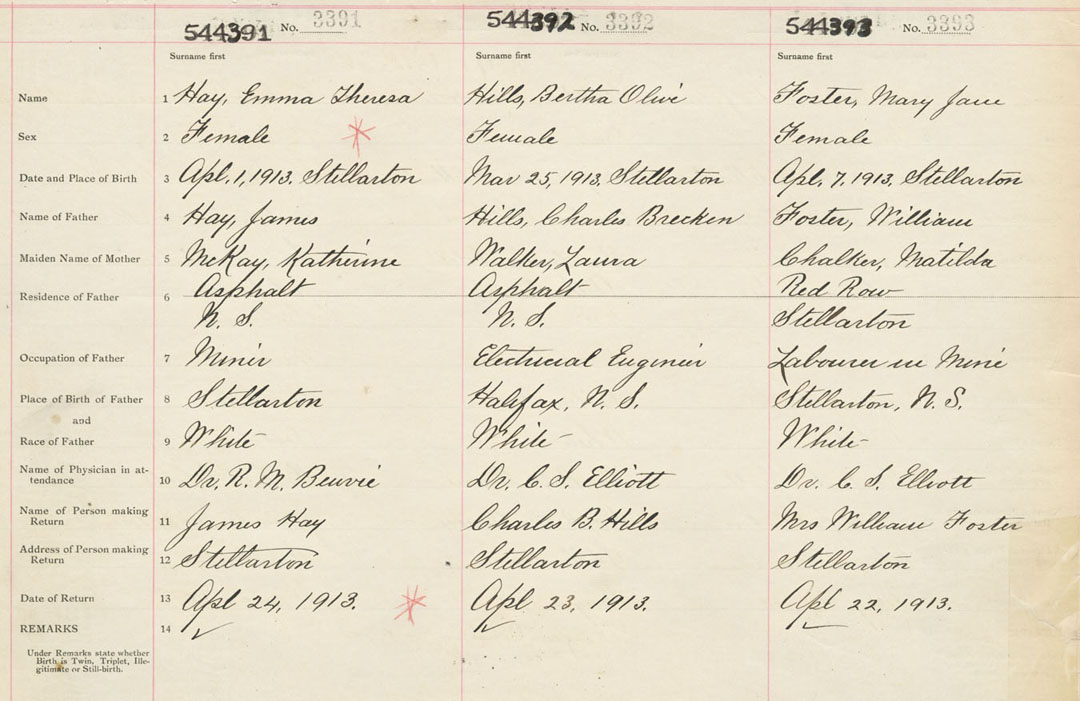 544391 No. 3391 544392 No. 3392 544393 No. 3393
Surname first Surname first Surname first
Name 1 Hay, Emma Theresa Hills, Bertha Olive Foster, Mary Jane
Sex 2 Female Female Female
Date and Place of Birth 3 Apl. 1, 1913. Stellarton Mar 25, 1913, Stellarton Apl. 7, 1913, Stellarton
Name of Father 4 Hay, James Hills, Charles Brecken Foster, William
Maiden Name of Mother 5 McKay, Katherine Walker, Laura Chalker, Matilda
Residence of Father 6 Asphalt Asphalt Red Row
N. S. N. S. Stellarton
Occupation of Father 7 Miner Electrical Engineer Labourer in Mine
Place of Birth of Father 8 Stellarton Halifax, N. S. Stellarton, N. S.
and
Race of Father 9 White White White
Name of Physician in at-
tendance 10 Dr. R. M. Benvie Dr. C. S. Elliott Dr. C. S. Elliott
Name of Person making
Return 11 James Hay Charles B. Hills Mrs William Foster
Address of Person making
Return 12 Stellarton Stellarton Stellarton
Date of Return 13 Apl 24, 1913. Apl. 23, 1913. Apl 22, 1913.
REMARKS 14
Under Remarks state whether
Birth is Twin, Triplet, Ille-
gitimate or Still-birth.